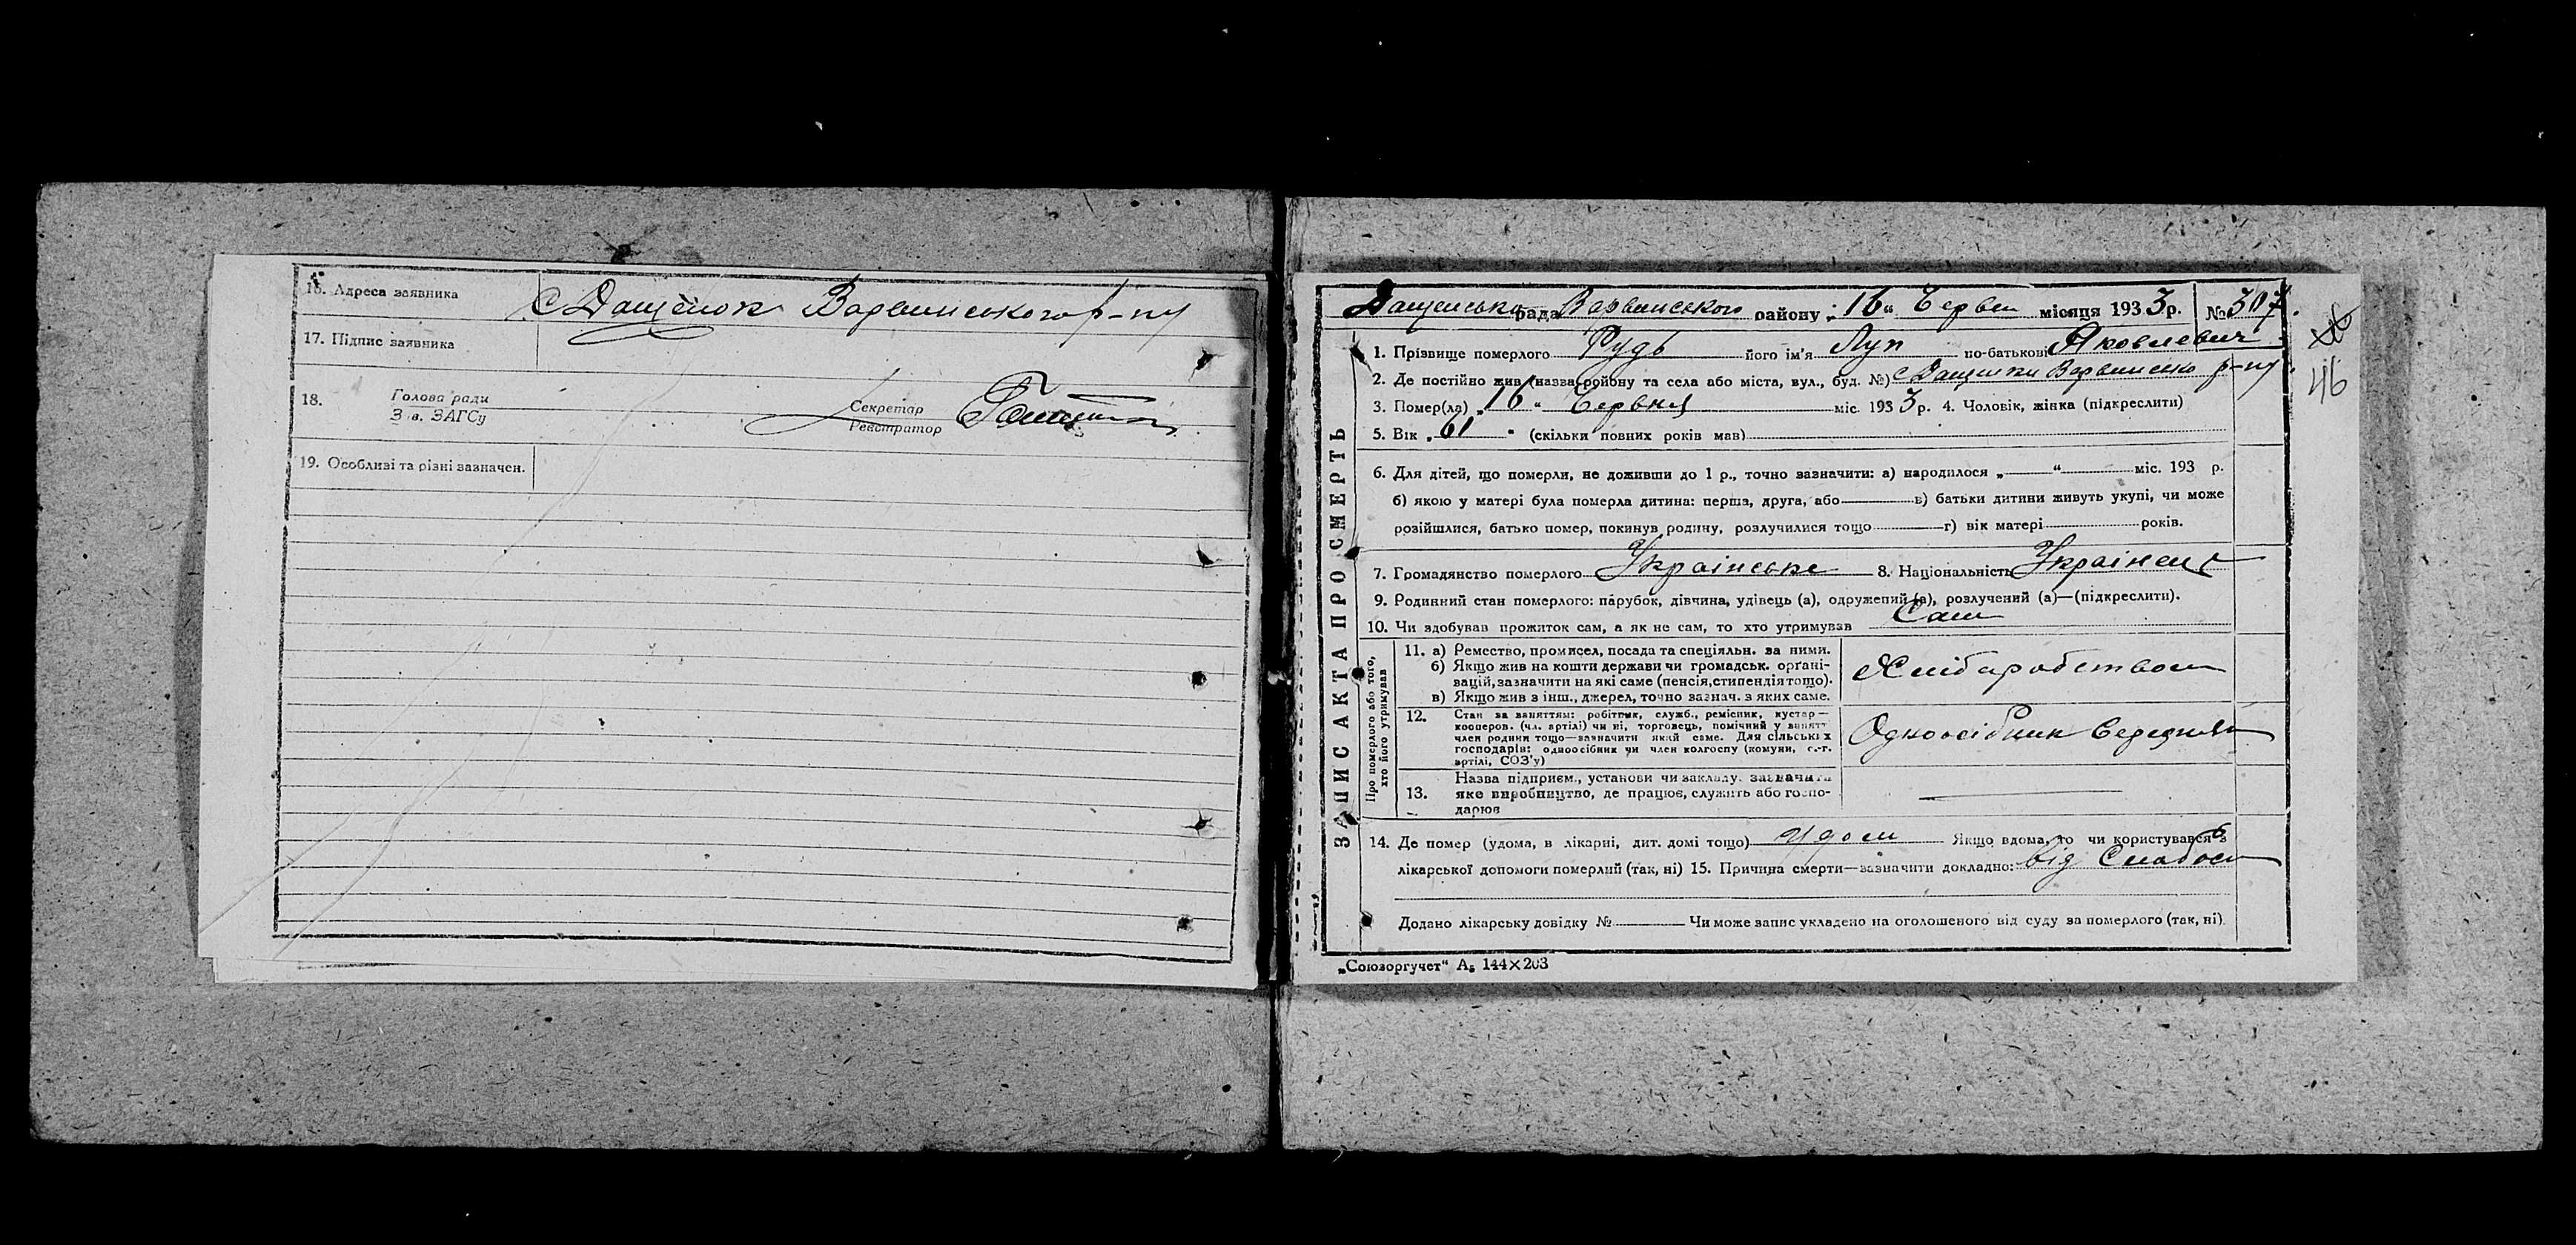 16. Адреса заявника с Дащенок Варвинського р-ну
17. Підпис заявника
18. Голова ради
Зав. ЗАГСу
Секретар
Реєстратор
19. Особливі та різні зазначен.
Дащенська рада Варвинського району „16“ Червн місяця 1933 р. № 307
1. Прізвище померлого Рудь його ім'я Луп по-батькові Яковлевич
2. Де постійно жив (назва району та села або міста, вул., буд. №) с Дащинки Варвинсько р-ну
3. Помер(ла) „16“ Червня міс. 1933 р. 4. Чоловік, жінка (підкреслити)
46
5. Вік „61“ (скільки повних років мав)
6. Для дітей, що померли, не доживши до 1 р., точно зазначити: а) народилося „ “ міс. 193 р.
б) якою у матері була померла дитина: перша, друга, або в) батьки дитини живуть укупі, чи може
розійшлися, батько помер, покинув родину, розлучилися тощо г) вік матері років.
7. Громадянство померлого Українське 8. Національність Українець
9. Родинний стан померлого: парубок, дівчина, удівець (а), одружений (а), розлучений (а)—(підкреслити).
10. Чи здобував прожиток сам, а як не сам, то хто утримував Сам
ЗАПИС АКТА ПРО СМЕРТЬ
Про померлого або того, хто його утримував
11. а) Ремество, промисел, посада та спеціяльн. за ними.
б) Якщо жив на кошти держави чи громадськ. орґані-
зацій, зазначити на які саме (пенсія, стипендія тощо).
в) Якщо жив з інш., джерел, точно зазнач. з яких саме.
Хлібаробством
12. Стан за заняттям: робітник, служб., ремісник, кустар—
кооперов. (чл. артілі) чи ні, торговець, помічний у занятт
член родини тощо—зазначити який саме. Для сільських
господарів: одноосібник чи член колгоспу (комуни, с.-г.
артілі, СОЗ'у)
Одноосібник Середняк
13. Назва підприєм., установи чи закладу. зазначити
яке виробництво, де працює, служить або госпо-
дарює
14. Де помер (удома, в лікарні, дит. домі тощо) удом Якщо вдома, то чи користувався з
лікарської допомоги померлий (так, ні) 15. Причина смерти—зазначити докладно: від Слабост
Додано лікарську довідку № Чи може запис укладено на оголошеного від суду за померлого (так, ні)
„Союзоргучет“ А₅ 144×203